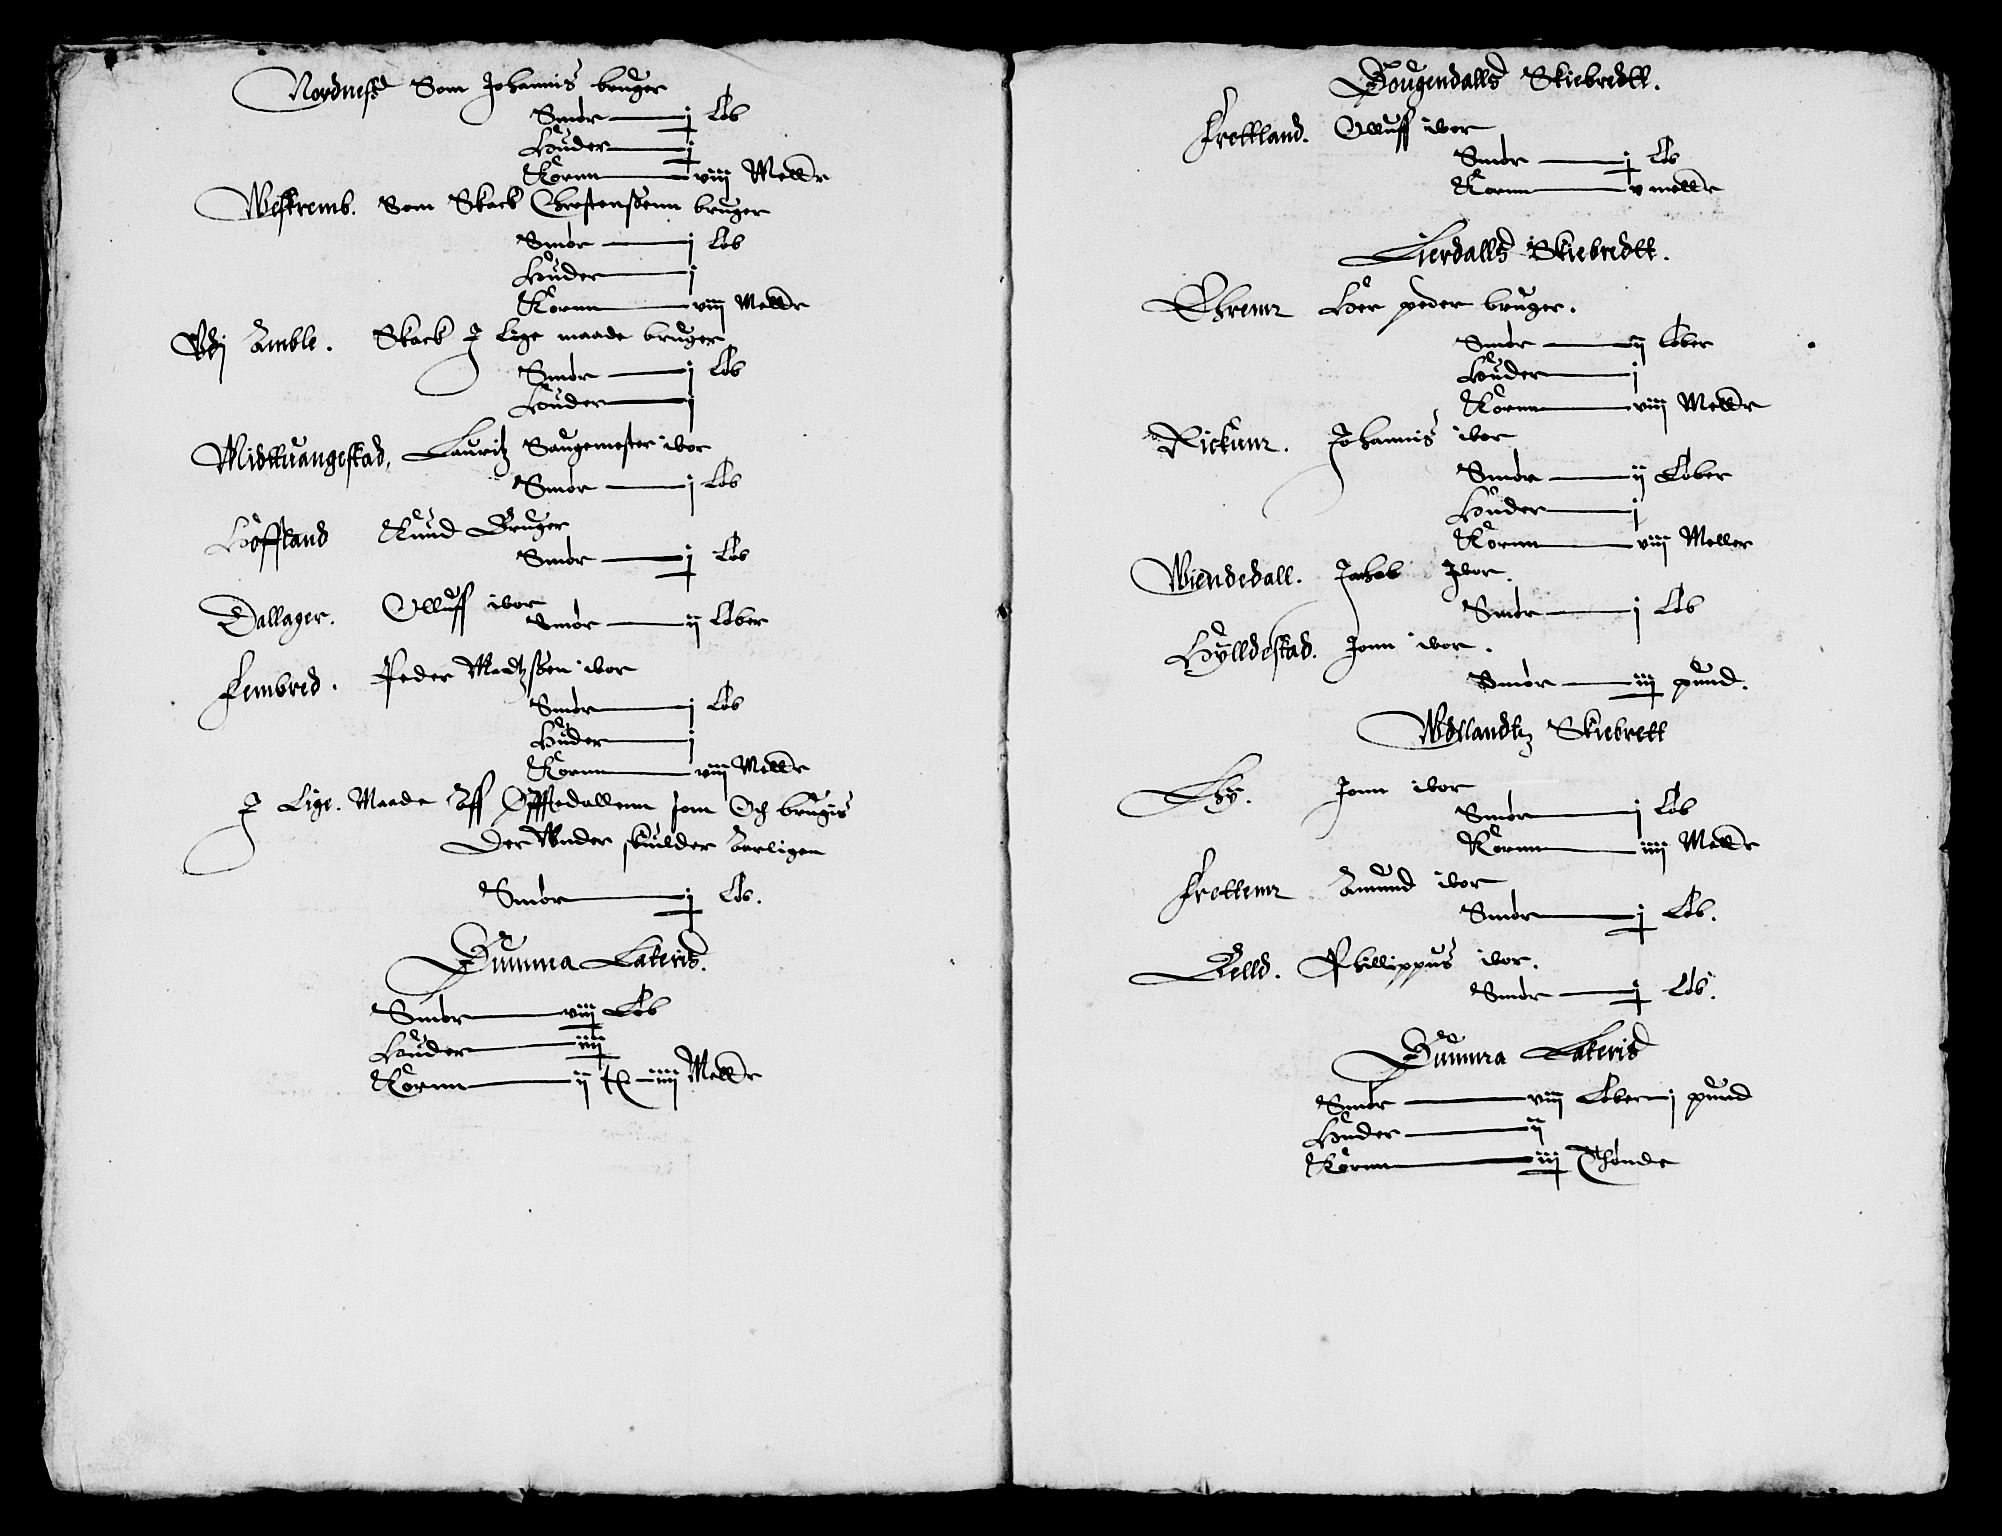 Nordness Som Johannis bruger
Smør — j Løb
Huder — j
Kornn — viij Meller
Westremb. Som Skack Christensenn bruger
Smør — j Løb
Huder — j
Kornn — viij Meller
Wdj Amble. Skack J Lige maade bruger
Smør — j Løb
Huder — j
Midttuangestad. Lauritz Saugemester ibor
Smør — j Løb
Hoffland Knud Bruger
Smør — j Løb
Dallager. Oluff ibor
Smør — ij Løber
Fembred. Peder Madtzsen ibor
Smør — j Løb
Huder — j
Kornn — viij Meller
J Lige. Maade Aff Offttedallenn som Och brugis
Der Wnder skulder Aarligen
Smør — j Løb.
Summa Lateris.
Smør — viij Løb
Huder — iiij
Kornn — ij — iiij Meller
Sougendalls Skiebredtt.
Frettland. Oluff ibor
Smør — j Løb
Kornn — v meller
Lierdalls Skiebredtt.
Ehremr Her peder bruger.
Smør — ij Løber
Huder — j
Kornn — viij Meller
Rickumr. Johannis ibor
Smør — ij Løber
Huder — j
Kornn — viij Meller
Wiendedall. Jachob Jbor.
Smør — j Løb
Hylldestad. Jonn ibor.
Smør — iij pund.
Wdllandtz Skiebrett
Lhy. Jonn ibor
Smør — j Løb
Kornn — iiij Meller
Frettemr Amund ibor
Smør — j Løb.
Phillippus ibor.
Smør — j Løb.
Summa Lateris
Smør — viij Løber — j pund
Huder — ij
Kornn — iij Thønde